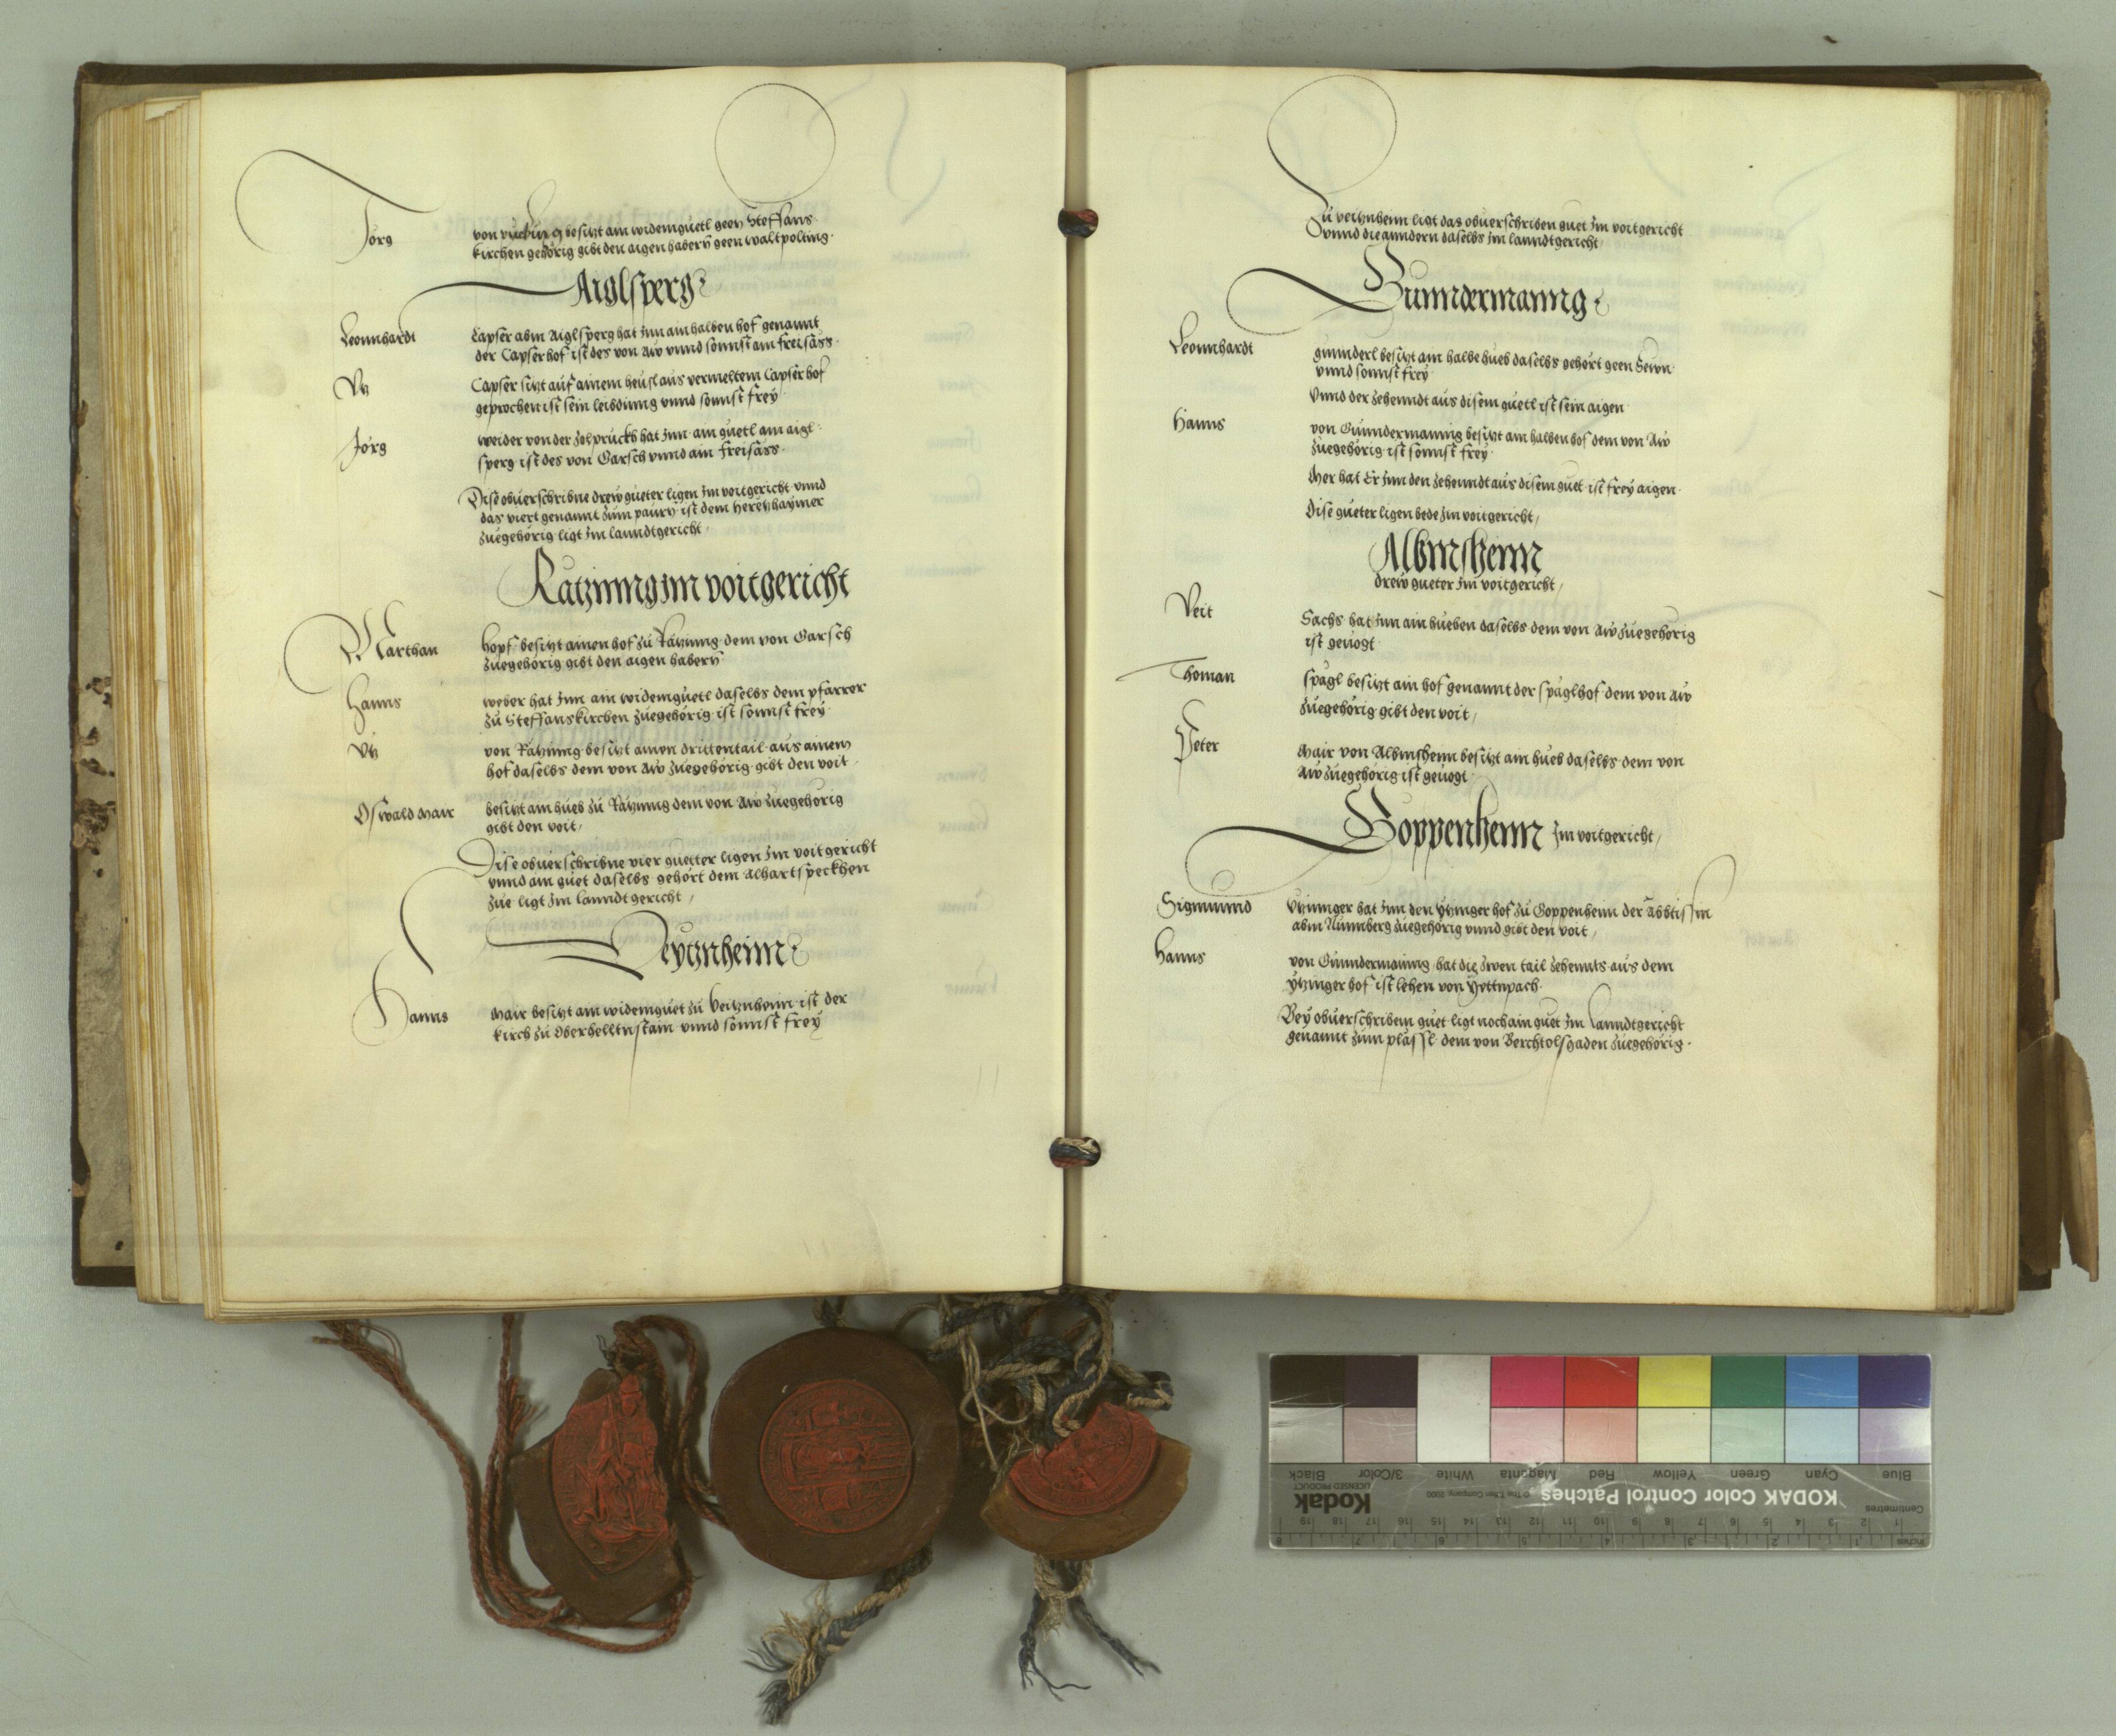 Jörg von ruckurg besitzt am widemguetl geen Steffans
kirchen gehörig gibt den aigen habern geen waltpolting
Aiglsperg
Leonnhardt Capser abm Aiglsperg hat Jnn ain halben hof genannt
der Capserhof ist des von Aw vnnd sonnst ain freisäss
Vtz Capser sitzt auf ainem heusl aus vermeltem Capserhof
geprochen ist sein leibding vnnd sonnst frey
Jörg weider von der zolpruckh hat Jnn ain guetl am aigl
sperg ist des von Garsch vnnd ain freisäss
Dise obuerschribne drew gueter ligen Jm voitgericht vnnd
das viert genannt zum paurn ist dem heretzhaymer
zuegehörig ligt Jm lanndtgericht
Ratzinng Jm voitgericht
Marthan hopf besitzt ainen hof zu Ratzinng dem von Garsch
zuegehörig gibt den aigen habern
Hanns weber hat Jnn ain widemguetl daselbs dem pfarrer
zu Steffanskirchen zuegehörig ist sonnst frey
Vtz von Ratzinng besitzt ainen drittentail aus ainem
hof daselbs dem von Aw zuegehörig gibt den voit
Oswald mair besitzt ain hueb zu Ratzinng dem von Aw zuegehörig
gibt den voit
Dise obuerschribne vier guetter ligen Jm voitgericht
vnnd ain guet daselbs gehört dem Albartspeckhen
zue ligt Jm lanndtgericht
Veytznheim
Hanns mair besitzt ain widemguet zu Veitznheim ist der
kirch zu Oberhelltnstain vnnd sonnst frey
Zu veitznheim ligt das obuerschriben guet Jm voitgericht
vnnd die anndern daselbs Jm lanndtgericht
Gunndermanng
Leonnhardt gunnderl besitzt ain halbe hueb daselbs gehört geen Sewn
vnnd sonnst frey
Vnnd der zehenndt aus disem guetl ist sein aigen
Hanns von Gunndermanng besitzt ain halben hof dem von Aw
zuegehörig ist sonnst frey
Mer hat Er Jnn den zehenndt aus disem guet ist frey aigen
Dise gueter ligen bede Jm voitgericht
Albmshenn
drew gueter Jm voitgericht
Veit Sachs hat Jnn ain hueben daselbs dem von Aw zuegehörig
ist geuogt
Thoman spägl besitzt ain hof genannt der späglhof dem von Aw
zuegehörig gibt den voit
Peter Mair von Albmshenn besitzt ain hueb daselbs dem von
Aw zuegehörig ist geuogt
Goppenheim Jm voitgericht
Sigmunnd Vtzinnger hat Jnn den ytzinger hof zu Goppenheim der Abbtissin
abm Nunnberg zuegehörig vnnd gibt den voit
Hanns von Gunndermanng hat die zwen tail zehennts aus dem
ytzinger hof ist lehen von
Bey obuerschribem guet ligt noch ain guet Jm lanndtgericht
genannt zum plässl dem von Berchtolsgaden zuegehörig
KODAK Color Control Patches
© The Tiffen Company, 2000
Kodak
LICENSED PRODUCT
Black 3/Color White Magenta Red Yellow Green Cyan Blue
Centimetres
1 2 3 4 5 6 7 8 9 10 11 12 13 14 15 16 17 18 19
Inches
1 2 3 4 5 6 7 8